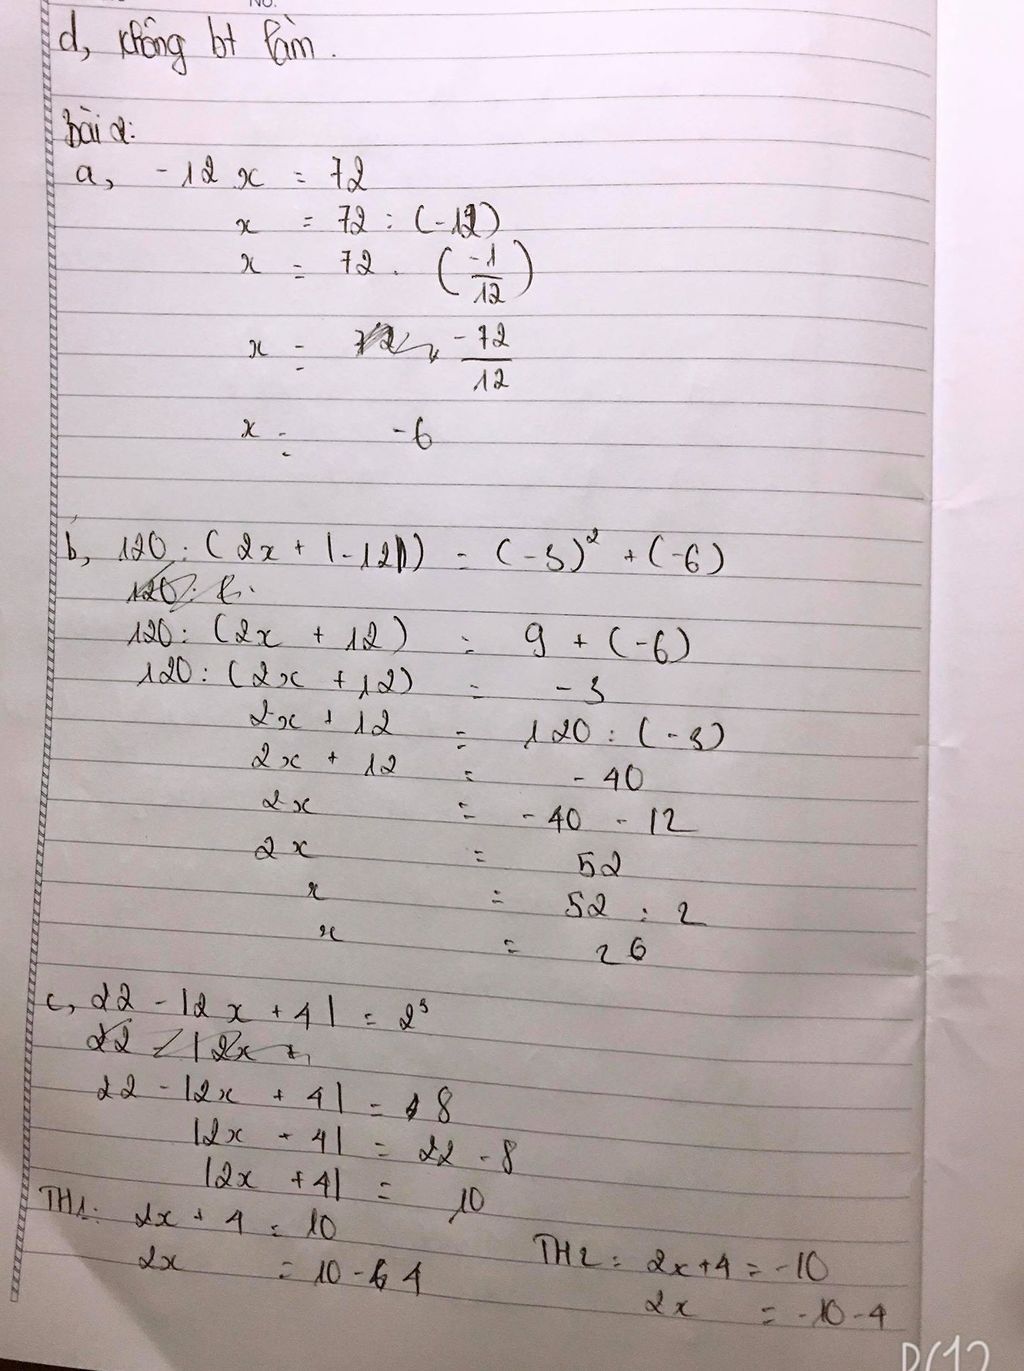 No.
d, không bt làm.
Bài 2:
a, -12 x = 72
x = 72 : (-12)
x = 72 . (-1/12)
x = -72/12
x = -6
b, 120 : (2x + |-12|) = (-3)² + (-6)
120 : (2x + 12) = 9 + (-6)
120 : (2x + 12) = -3
2x + 12 = 120 : (-3)
2x + 12 = -40
2x = -40 - 12
2x = 52
x = 52 : 2
x = 26
c, 22 - |2x + 4| = 2³
22 - |2x +
22 - |2x + 4| = 8
|2x + 4| = 22 - 8
|2x + 4| = 10
TH1: 2x + 4 = 10
2x = 10 - 4
TH2: 2x + 4 = -10
2x = -10 - 4